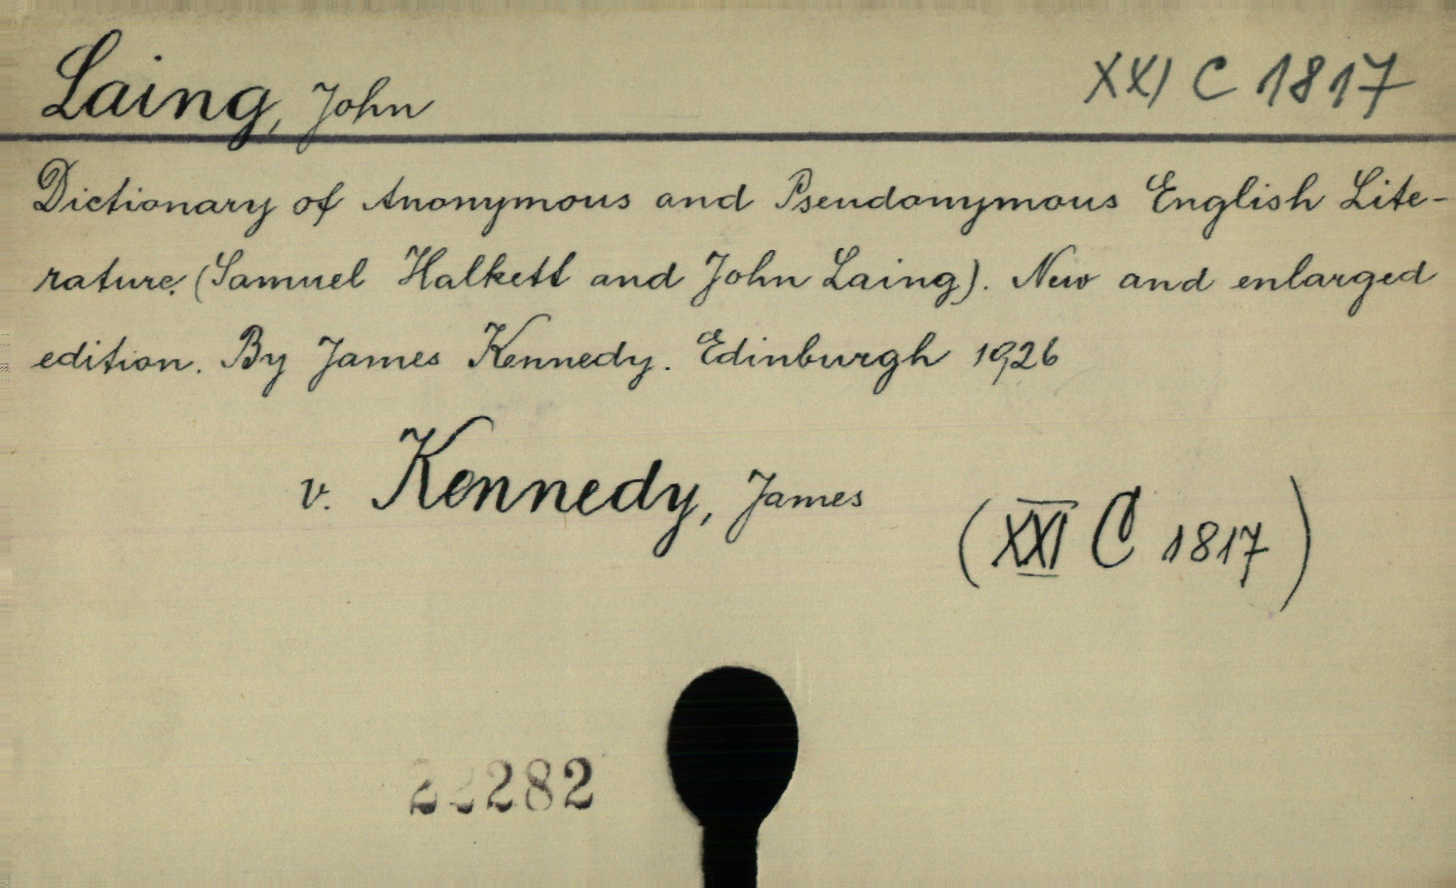 Laing, John
XXI C 1817
Dictionary of Anonymous and Pseudonymous English Lite-
rature. (Samuel Halkett and John Laing). New and enlarged
edition. By James Kennedy. Edinburgh 1926
v. Kennedy, James
(XXI C 1817)
22282